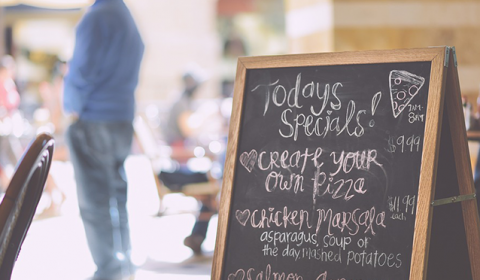 Todays
Specials!
7AM-
8AM
create your
$9.99
own pizza
Chicken Marsala
$11.99
each
asparagus, soup of
the day, mashed potatoes
Salmon